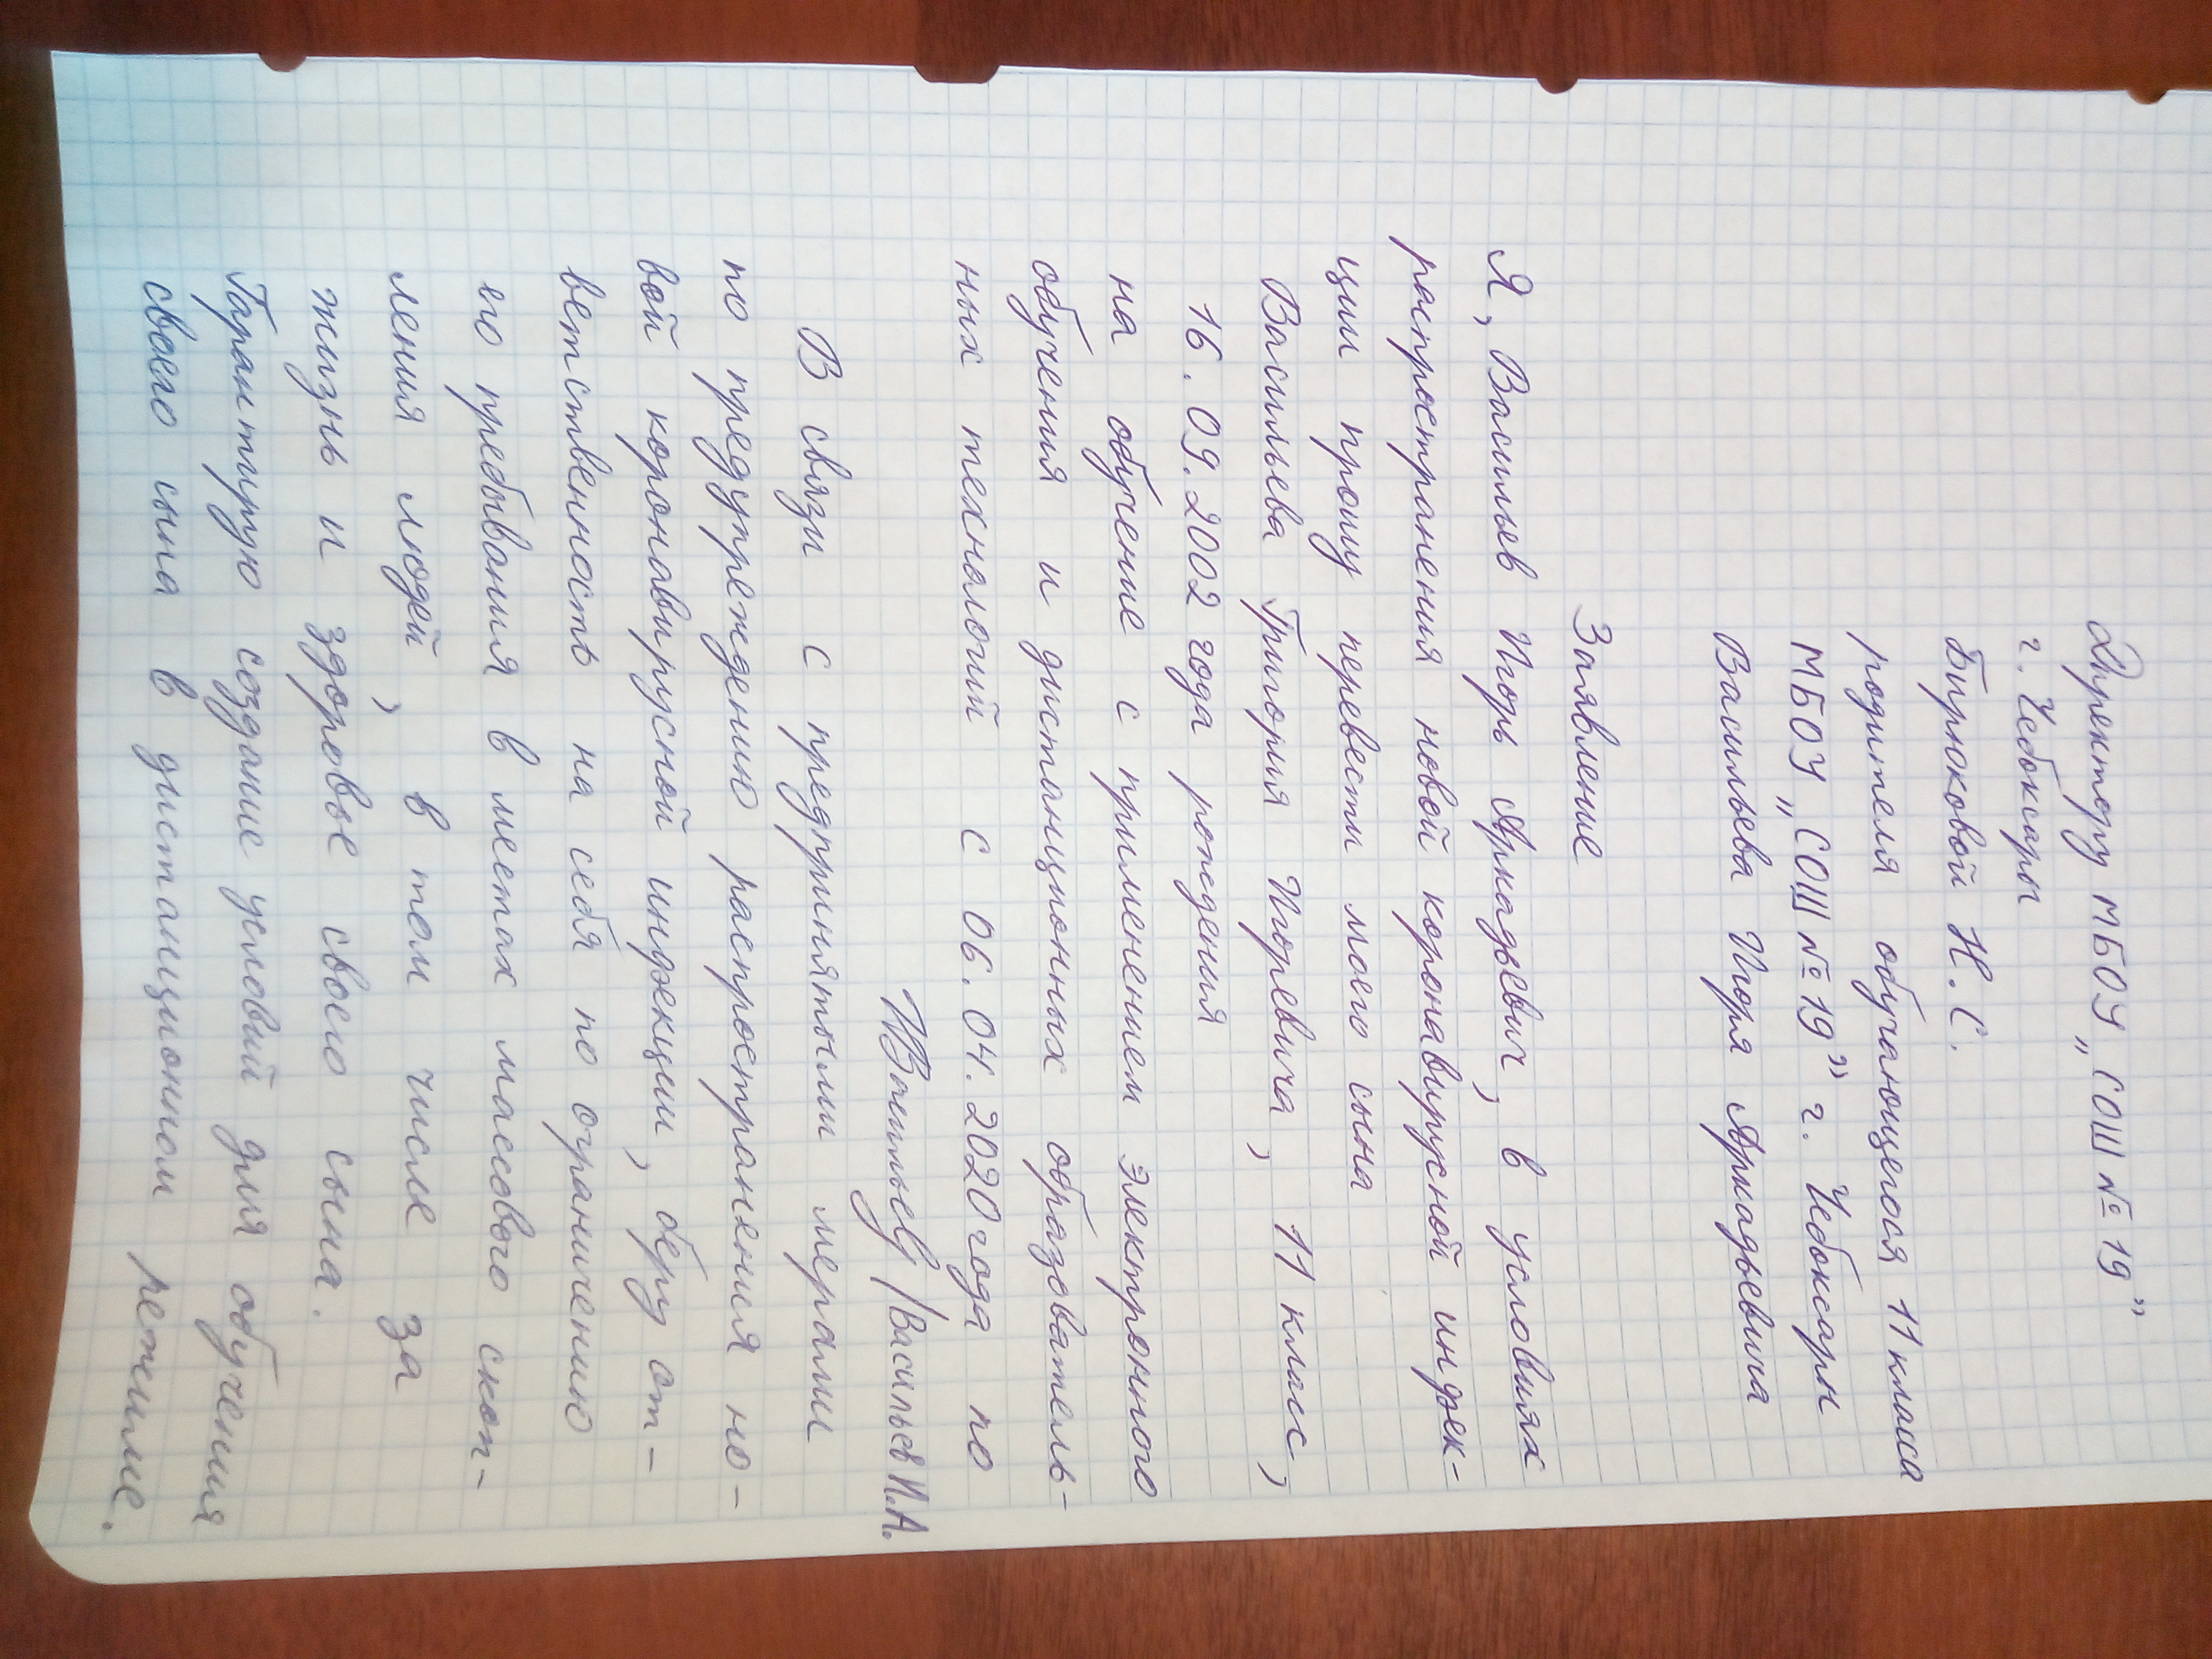 Директору МБОУ „СОШ № 19”
г. Чебоксары
Бирюковой Н. С.
родителя обучающегося 11 класса
МБОУ „СОШ № 19” г. Чебоксары
Васильева Игоря Аркадьевича
Заявление
Я, Васильев Игорь Аркадьевич, в условиях
распространения новой коронавирусной инфек-
ции прошу перевести моего сына
Васильева Григория Игоревича, 11 класс,
16.09.2002 года рождения
на обучение с применением электронного
обучения и дистанционных образователь-
ных технологий с 06.04.2020 года по
ИВасильев /Васильев И.А.
В связи с предпринятыми мерами
по предупреждению распространения но-
вой коронавирусной инфекции, беру от-
ветственность на себя по ограничению
его пребывания в местах массового скоп-
ления людей, в том числе за
жизнь и здоровье своего сына.
Гарантирую создание условий для обучения
своего сына в дистанционном режиме.